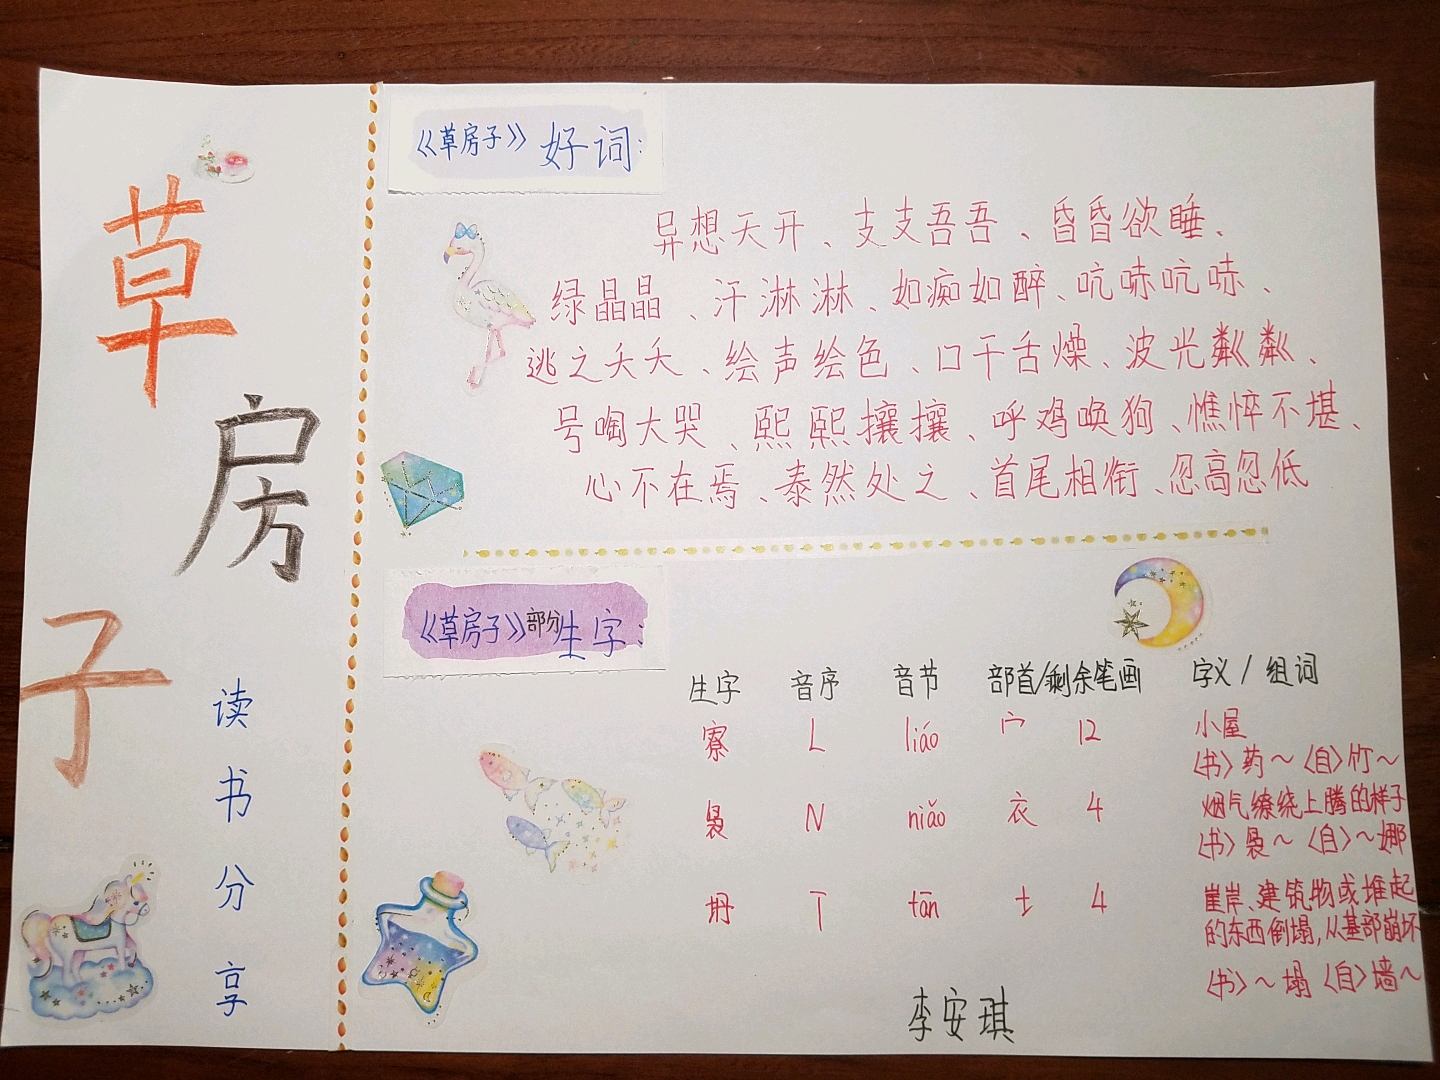 草
房
子
读
书
分
享
《草房子》好词:
异想天开、支支吾吾、昏昏欲睡、
绿晶晶、汗淋淋、如痴如醉、吭哧吭哧、
逃之夭夭、绘声绘色、口干舌燥、波光粼粼、
号啕大哭、熙熙攘攘、呼鸡唤狗、憔悴不堪、
心不在焉、泰然处之、首尾相衔、忽高忽低
《草房子》部分生字:
生字 音序 音节 部首/剩余笔画 字义/组词
寮 L liáo 宀 12 小屋
〈书〉药～〈自〉竹～
袅 N niǎo 衣 4 烟气缭绕上腾的样子
〈书〉袅～〈自〉～娜
坍 T tān 土 4 崖岸、建筑物或堆起
的东西倒塌,从基部崩坏
〈书〉～塌〈自〉墙～
李安琪